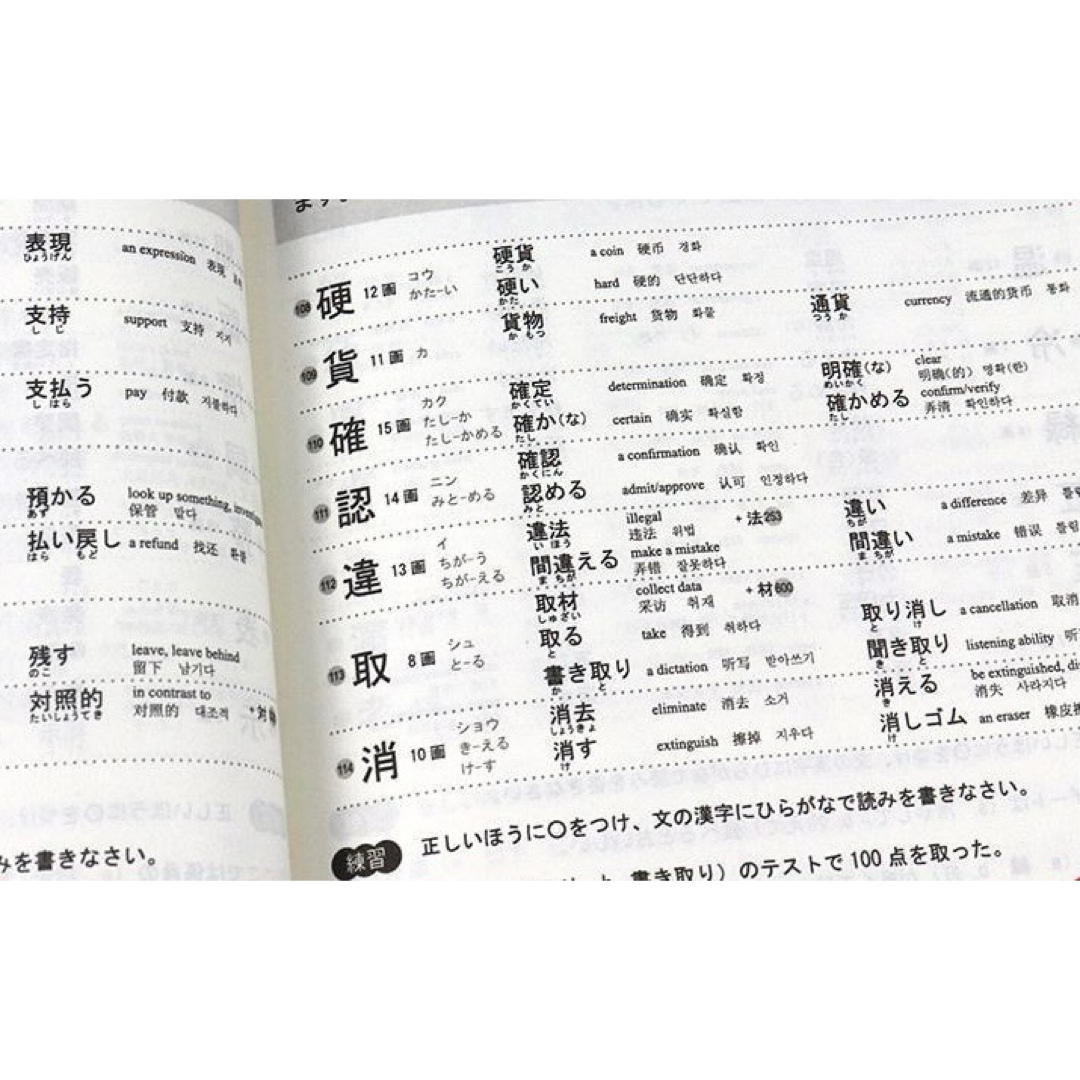 表現 an expression 表現
ひょうげん
支持 support 支持 지지
しじ
支払う pay 付款 지불하다
しはら
預かる look up something,
あず 保管 맡다
払い戻し a refund 找还 환불
はらもど
残す leave, leave behind
のこ 留下 남기다
対照的 in contrast to
たいしょうてき 对照的 대조적
みを書きなさい。
ます。
108 硬 12画 コウ かた-い
硬貨 a coin 硬币 경화
こうか
硬い hard 硬的 단단하다
かた
109 貨 11画 カ
貨物 freight 货物 화물
かもつ
通貨 currency 流通的货币 통화
つうか
110 確 15画 カク たし-か たし-かめる
確定 determination 确定 확정
かくてい
確か(な) certain 确实 확실함
たし
明確(な) clear 明确(的) 명확(한)
めいかく
確かめる confirm/verify 弄清 확인하다
たし
111 認 14画 ニン みと-める
確認 a confirmation 确认 확인
かくにん
認める admit/approve 认可 인정하다
みと
112 違 13画 イ ちが-う ちが-える
違法 illegal 违法 위법 +法253
いほう
間違える make a mistake 弄错 잘못하다
まちが
違い a difference 差异
ちが
間違い a mistake 错误
まちが
113 取 8画 シュ と-る
取材 collect data 采访 취재 +材600
しゅざい
取る take 得到 취하다
と
書き取り a dictation 听写 받아쓰기
かと
取り消し a cancellation 取消
とけ
聞き取り listening ability
きと
114 消 10画 ショウ き-える け-す
消去 eliminate 消去 소거
しょうきょ
消す extinguish 擦掉 지우다
け
消える be extinguished, 消失 사라지다
き
消しゴム an eraser
け
練習 正しいほうに〇をつけ、文の漢字にひらがなで読みを書きなさい。
書き取り)のテストで100点を取った。